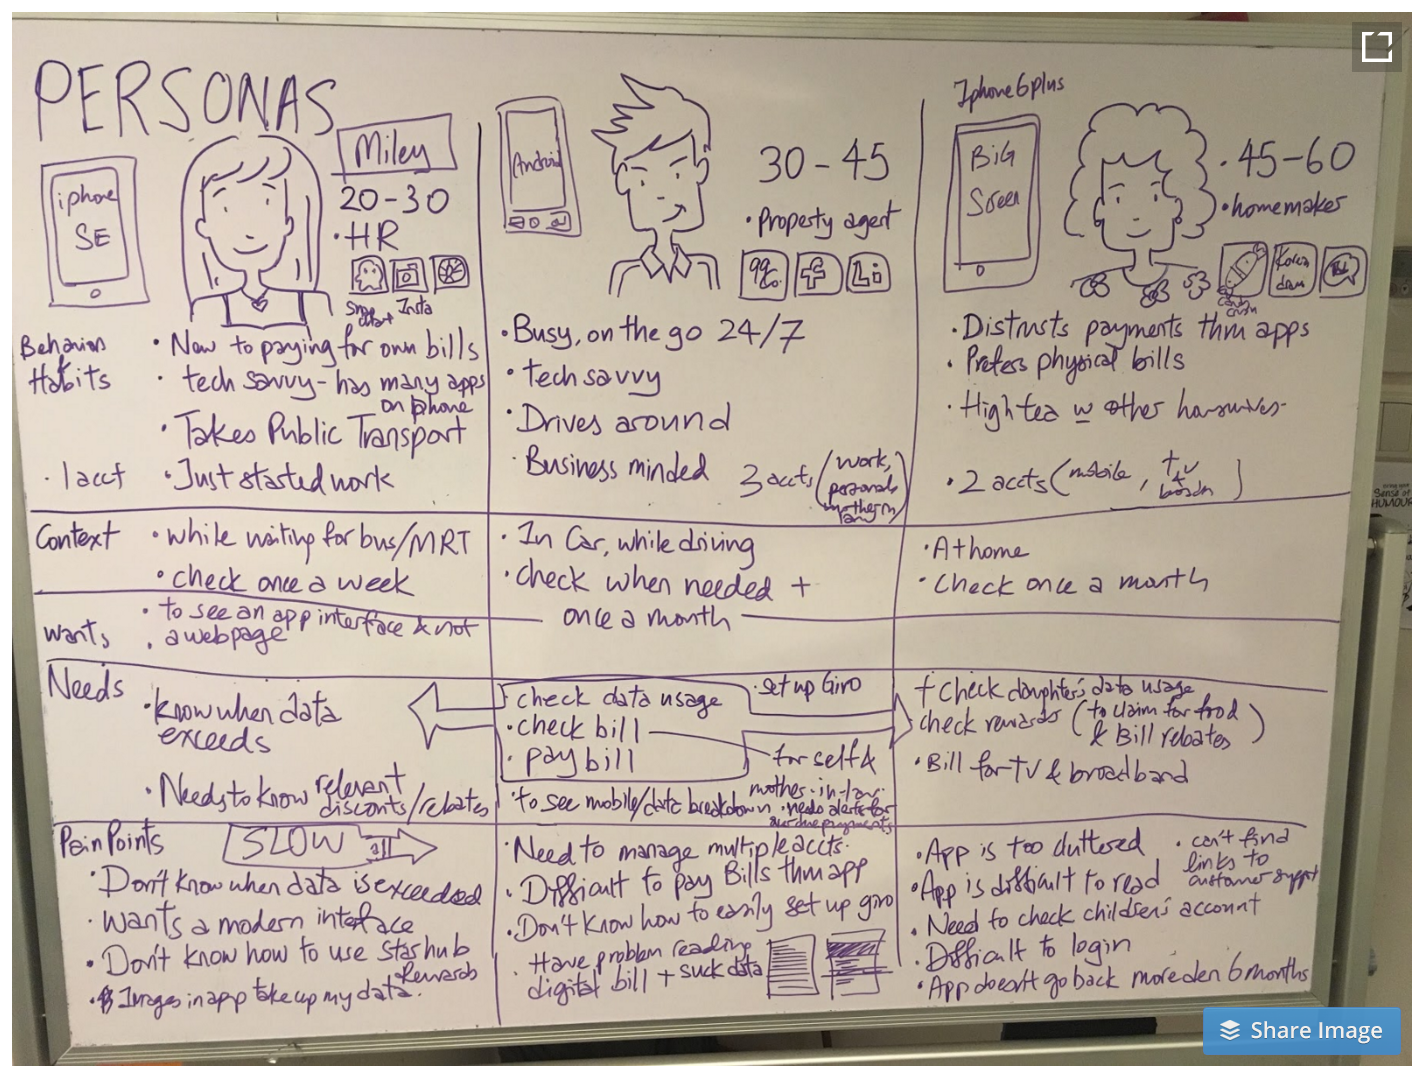 PERSONAS
iphone
SE
Miley
20-30
• HR
Snap
chat
Insta
Behaviors
&
Habits
• New to paying for own bills
• tech savvy - has many apps
on phone
• Takes Public Transport
• 1 acct
• Just started work
Context
• while waiting for bus/MRT
• check once a week
Wants
• to see an app interface & not
• a webpage
Needs
• know when data
exceeds
• Needs to know relevant
disconts/rebates
Pain Points
SLOW
• Don't know when data is exceeded
• Wants a modern interface
• Don't know how to use starhub
Rewards
• Images in app take up my data.
Android
30-45
• Property agent
99
Co.
f
Li
• Busy, on the go 24/7
• tech savvy
• Drives around
• Business minded
3 accts (work,
personal
mother in
law)
• In Car, while driving
• check when needed +
once a month
• check data usage
• check bill
• pay bill
• set up Giro
for self &
mother-in-law
• to see mobile/data breakdown
• needs alerts for
overdue payments
• Need to manage multiple accts.
• Difficult to pay Bills thru app
• Don't know how to easily set up giro
• Have problem reading
digital bill + suck data
Iphone 6 plus
BiG
Screen
• 45-60
• homemaker
Candy
crush
Korean
dram
• Distrusts payments thru apps
• Prefers physical bills
• High tea w other housewives.
• 2 accts (mobile, TV
+
broadbn)
• At home
• Check once a month
+ Check daughter's data usage
check rewards (to claim for food
& Bill rebates)
• Bill for TV & broadband
• App is too cluttered
• can't find
links to
customer support
• App is difficult to read
• Need to check children's account
• Difficult to login
• App doesn't go back more den 6 months
Sense of
HUMOUR
Share Image